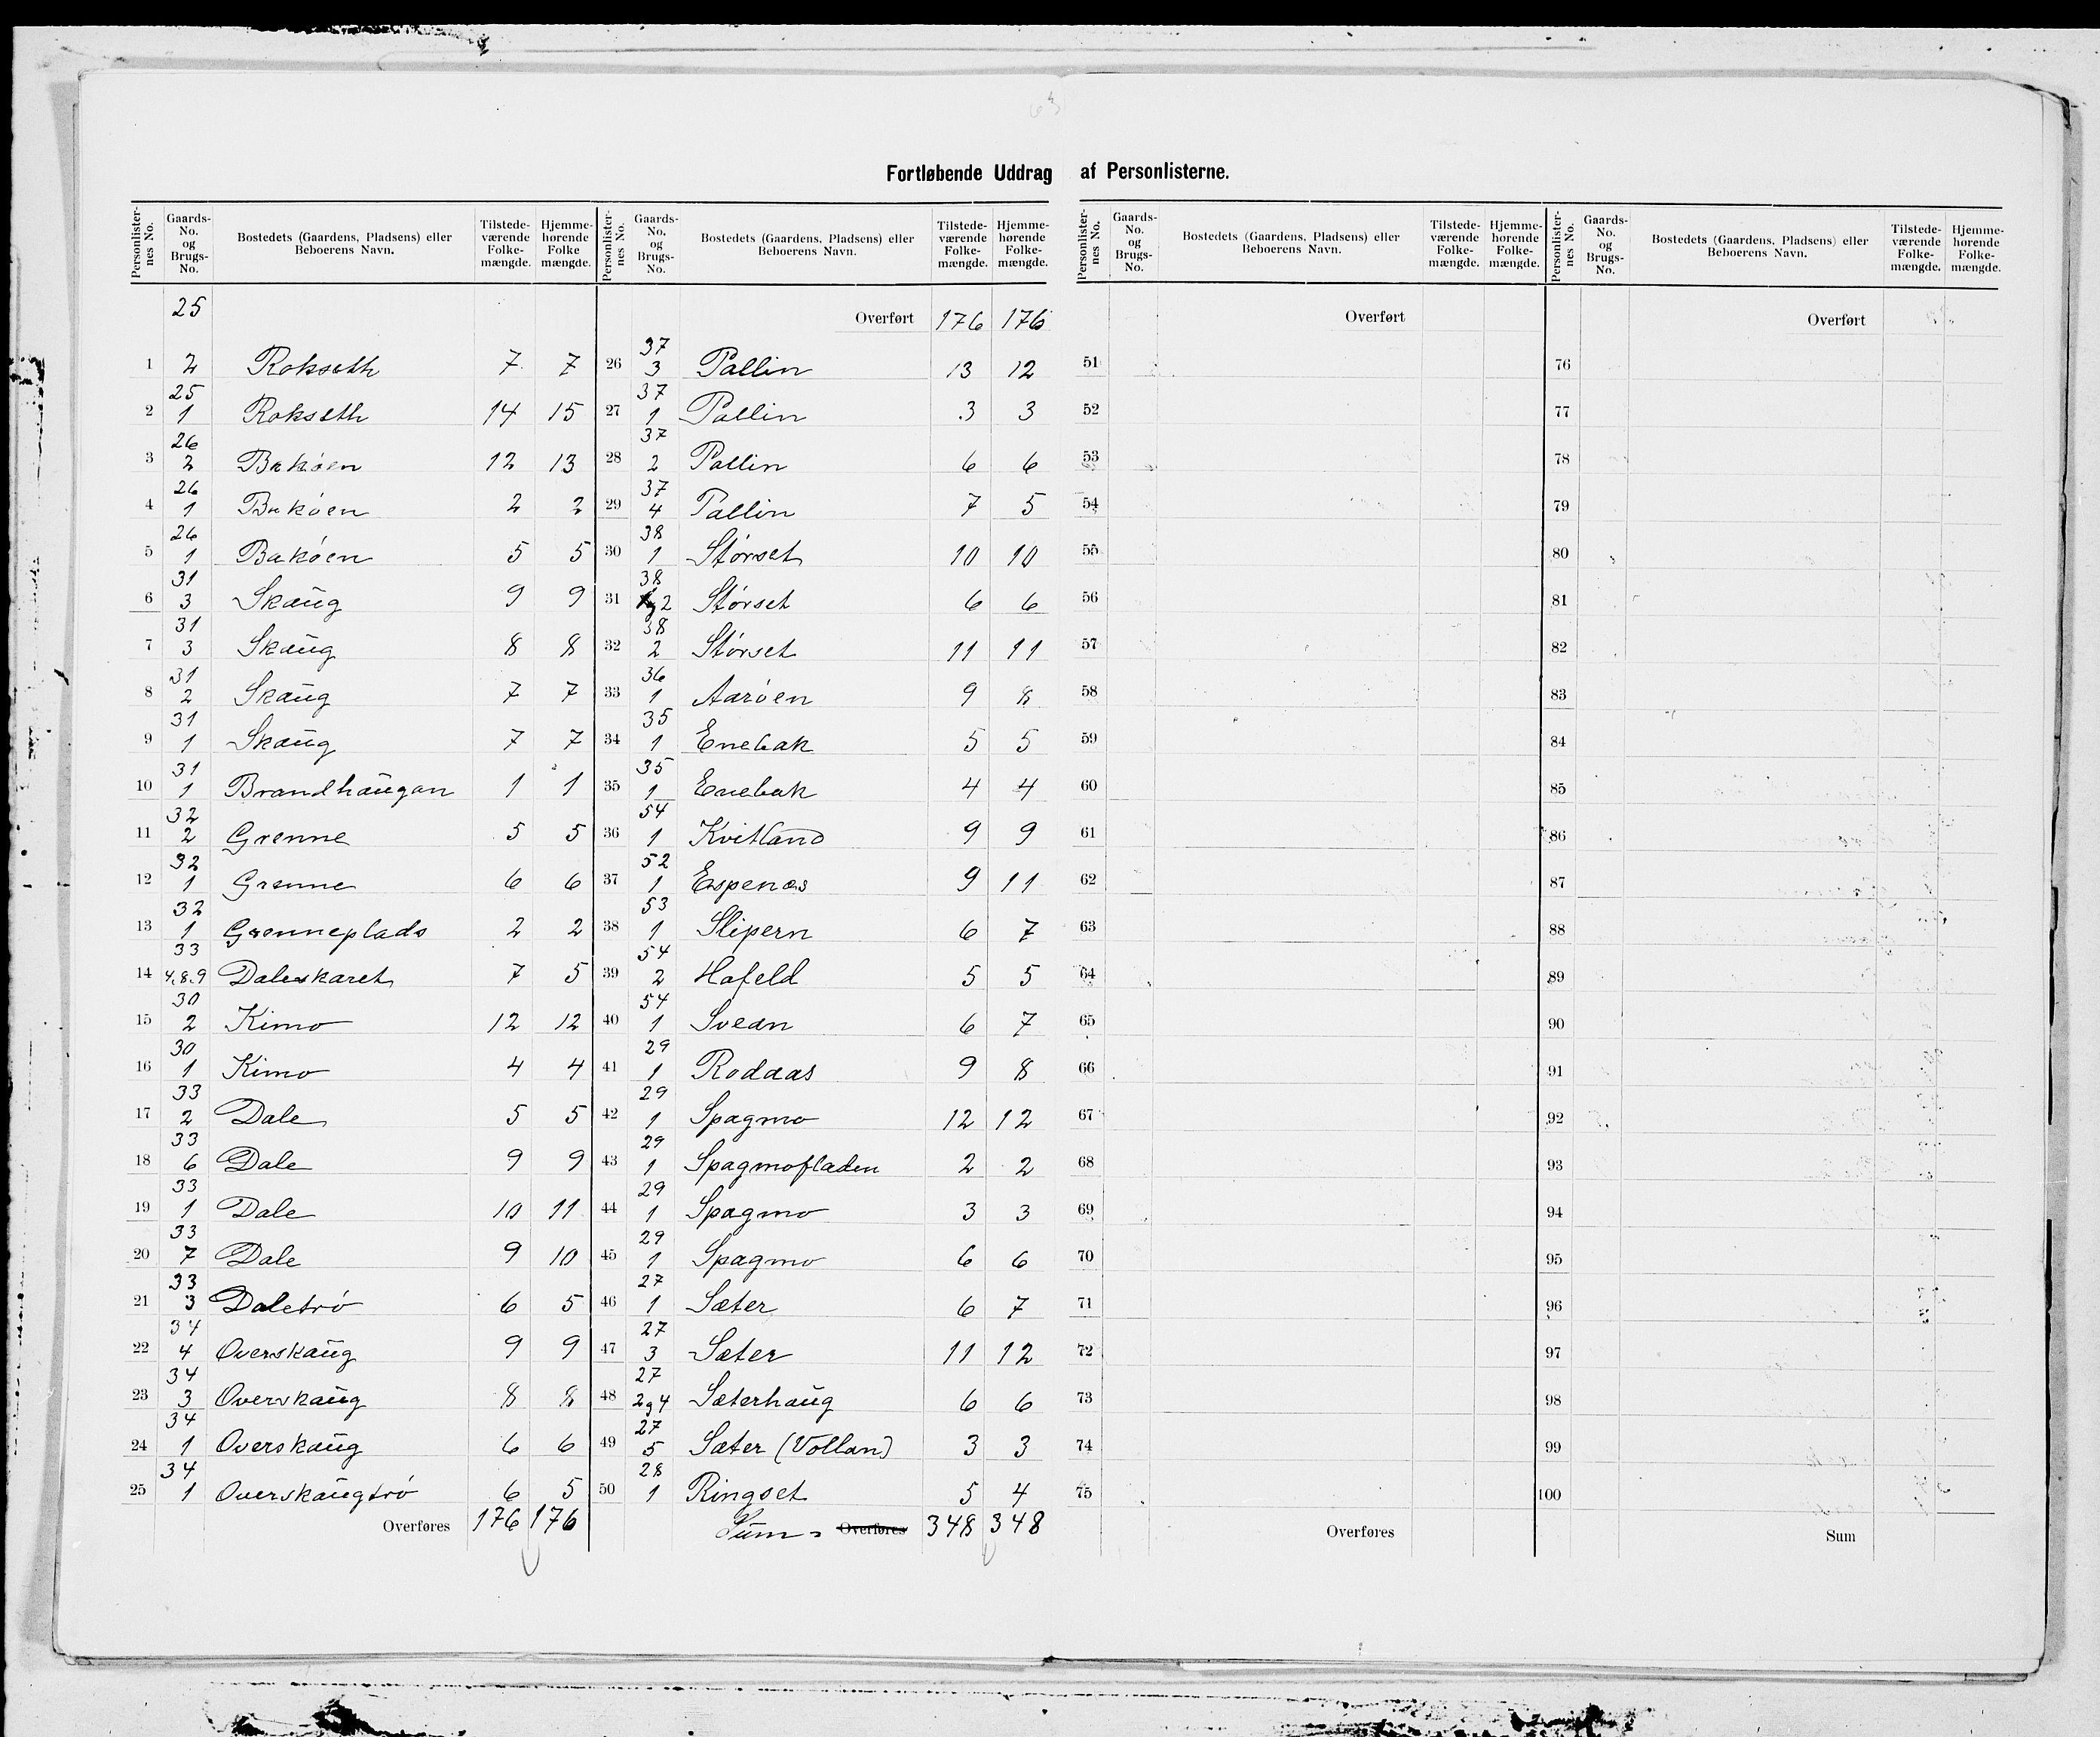 Fortløbende Uddrag af Personlisterne.
Personlister-nes No. Gaards-No. og Brugs-No. Bostedets (Gaardens, Pladsens) eller Beboerens Navn. Tilstede-værende Folke-mængde. Hjemme-hørende Folke mængde. Personlister-nes No. Gaards-No. og Brugs-No. Bostedets (Gaardens, Pladsens) eller Beboerens Navn. Tilstede-værende Folke-mængde. Hjemme-hørende Folke-mængde. Personlister-nes No. Gaards-No. og Brugs-No. Bostedets (Gaardens, Pladsens) eller Beboerens Navn. Tilstede-værende Folke-mængde. Hjemme-hørende Folke-mængde. Personlister-nes No. Gaards-No. og Brugs-No. Bostedets (Gaardens, Pladsens) eller Beboerens Navn. Tilstede-værende Folke-mængde. Hjemme-hørende Folke-mængde.
1 25 2 Rokseth 7 7
2 25 1 Rokseth 14 15
3 26 2 Bakøen 12 13
4 26 1 Bakøen 2 2
5 26 1 Bakøen 5 5
6 31 3 Skaug 9 9
7 31 3 Skaug 8 8
8 31 2 Skaug 7 7
9 31 1 Skaug 7 7
10 31 1 Brandhaugan 1 1
11 32 2 Grenne 5 5
12 32 1 Grenne 6 6
13 32 1 Grenneplads 2 2
14 33 4,8,9 Daleskaret 7 5
15 30 2 Kimo 12 12
16 30 1 Kimo 4 4
17 33 2 Dale 5 5
18 33 6 Dale 9 9
19 33 1 Dale 10 11
20 33 7 Dale 9 10
21 33 3 Daletrø 6 5
22 34 4 Overskaug 9 9
23 34 3 Overskaug 8 8
24 34 1 Overskaug 6 6
25 34 1 Overskaugtrø 6 5
Overføres 176 176
Overført 176 176
26 37 3 Pallin 13 12
27 37 1 Pallin 3 3
28 37 2 Pallin 6 6
29 37 4 Pallin 7 5
30 38 1 Størset 10 10
31 38 2 Størset 6 6
32 38 2 Størset 11 11
33 36 1 Aarøen 9 8
34 35 1 Enebak 5 5
35 35 1 Enebak 4 4
36 54 1 Kvitland 9 9
37 52 1 Espenæs 9 11
38 53 1 Slipern 6 7
39 54 2 Hafeld 5 5
40 54 1 Svean 6 7
41 29 1 Rodaas 9 8
42 29 1 Spagmo 12 12
43 29 1 Spagmofladen 2 2
44 29 1 Spagmo 3 3
45 29 1 Spagmo 6 6
46 27 1 Sæter 6 7
47 27 3 Sæter 11 12
48 27 2 g 4 Sæterhaug 6 6
49 27 5 Sæter (Vollan) 3 3
50 28 1 Ringset 5 4
Sum = Overføres 348 348
Overført
51
52
53
54
55
56
57
58
59
60
61
62
63
64
65
66
67
68
69
70
71
72
73
74
75
Overføres
Overført
76
77
78
79
80
81
82
83
84
85
86
87
88
89
90
91
92
93
94
95
96
97
98
99
100
Sum